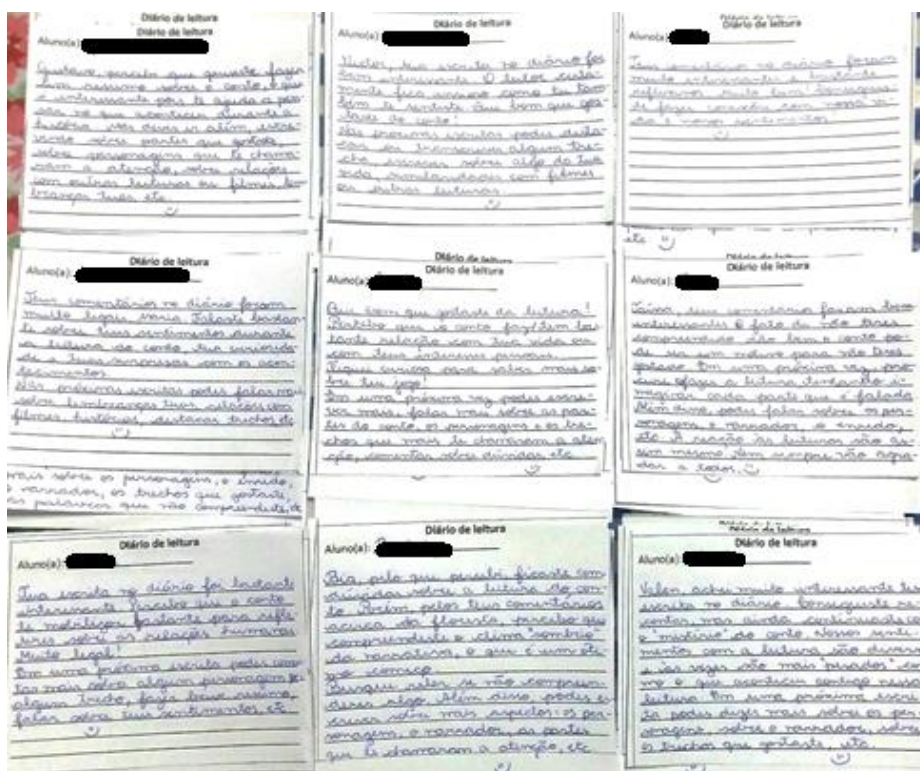 Diário de leitura
Diário de leitura
Aluno(a):
Gustavo, percebo que quiseste fazer
um resumo sobre o conto, o que
é interessante pois te ajuda a pen-
sar no que aconteceu durante a
história. Mas deves ir além, escre-
vendo sobre partes que gostaste,
sobre personagens que te chama-
ram a atenção, sobre relações
com outras leituras ou filmes, lem-
branças tuas, etc.
Diário de leitura
Diário de leitura
Aluno(a):
tua escrita no diário foi
bem interessante. O leitor certa-
mente fica curioso como tu tam-
bém te sentiste. Que bom que gos-
taste do conto!
Nas próximas escritas podes desta-
car ou transcrever algum tre-
cho, escrever sobre algo da tua
vida, similaridades com filmes
ou outras leituras.
Diário de leitura
Aluno(a):
Teus comentários no diário foram
muito interessantes e bastante
reflexivos. Muito bem! Conseguis-
te fazer conexões com nossa vi-
da e nossos sentimentos!
Diário de leitura
Aluno(a):
Teus comentários no diário foram
muito legais, Maria. Falaste bastan-
te sobre teus sentimentos durante
a leitura do conto, tua curiosida-
de e tuas surpresas com os acon-
tecimentos.
Nas próximas escritas podes falar mais
sobre lembranças tuas, relações com
filmes, histórias, destacar trechos, etc
Diário de leitura
Diário de leitura
Aluno(a):
Que bom que gostaste da leitura!
Percebo que o conto faz/tem bas-
tante relação com tua vida ou
com teus interesses pessoais.
Fiquei curiosa para saber mais so-
bre teu jogo!
Em uma próxima vez podes escre-
ver mais, falar mais sobre as par-
tes do conto, os personagens e os tre-
chos que mais te chamaram a aten-
ção, comentar sobre dúvidas, etc
etc
Diário de leitura
Diário de leitura
Aluno(a):
teu comentário foram bem
interessantes. O fato de não teres
compreendido tão bem o conto po-
de ser um motivo para não teres
gostado. Em uma próxima vez, pro-
cura refazer a leitura tentando i-
maginar cada parte que é falada.
Além disso, podes falar sobre os per-
sonagens, o narrador, o enredo,
etc. A reação às leituras são as-
sim mesmo, nem sempre vão agra-
dar a todos.
mais sobre os personagens, o enredo,
o narrador, os trechos que gostaste,
as palavras que não compreendeste, etc
Diário de leitura
Aluno(a):
Tua escrita no diário foi bastante
interessante. Percebo que o conto
te mobilizou bastante para refle-
tires sobre as relações humanas.
Muito legal!
Em uma próxima escrita podes comen-
tar mais sobre algum personagem ou
algum trecho, fazer breve resumo,
falar sobre teus sentimentos, etc
Diário de leitura
Aluno(a):
Bia, pelo que percebi, ficaste com
dúvidas sobre a leitura do con-
to. Porém, pelos teus comentários
acerca da floresta, percebo que
compreendeste o clima "sombrio"
da narrativa, o que é um óti-
mo começo.
Busque reler se não compreen-
deres algo. Além disso, podes es-
crever sobre mais aspectos: os per-
sonagens, o narrador, as partes
que te chamaram a atenção, etc
Diário de leitura
Aluno(a):
achei muito interessante tua
escrita no diário. Conseguiste re-
contar, mas ainda continuaste com
o "mistério" do conto. Nossos senti-
mentos com a leitura são diversos
e às vezes são mais "pesados", co-
mo o que aconteceu contigo nessa
leitura. Em uma próxima escri-
ta podes dizer mais sobre os per-
sonagens, sobre o narrador, sobre
os trechos que gostaste, etc.